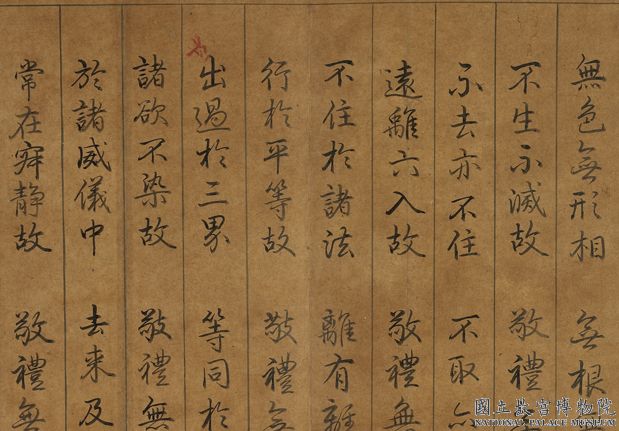 無色無形相 無根
不生不滅故 敬禮
不去亦不住 不取
遠離六入故 敬禮無
不住於諸法 離有離
行於平等故 敬禮無
出過於三界 等同於
諸欲不染故 敬禮無
於諸威儀中 去來及
常在寂靜故 敬禮無
國立故宮博物院
NATIONAL PALACE MUSEUM